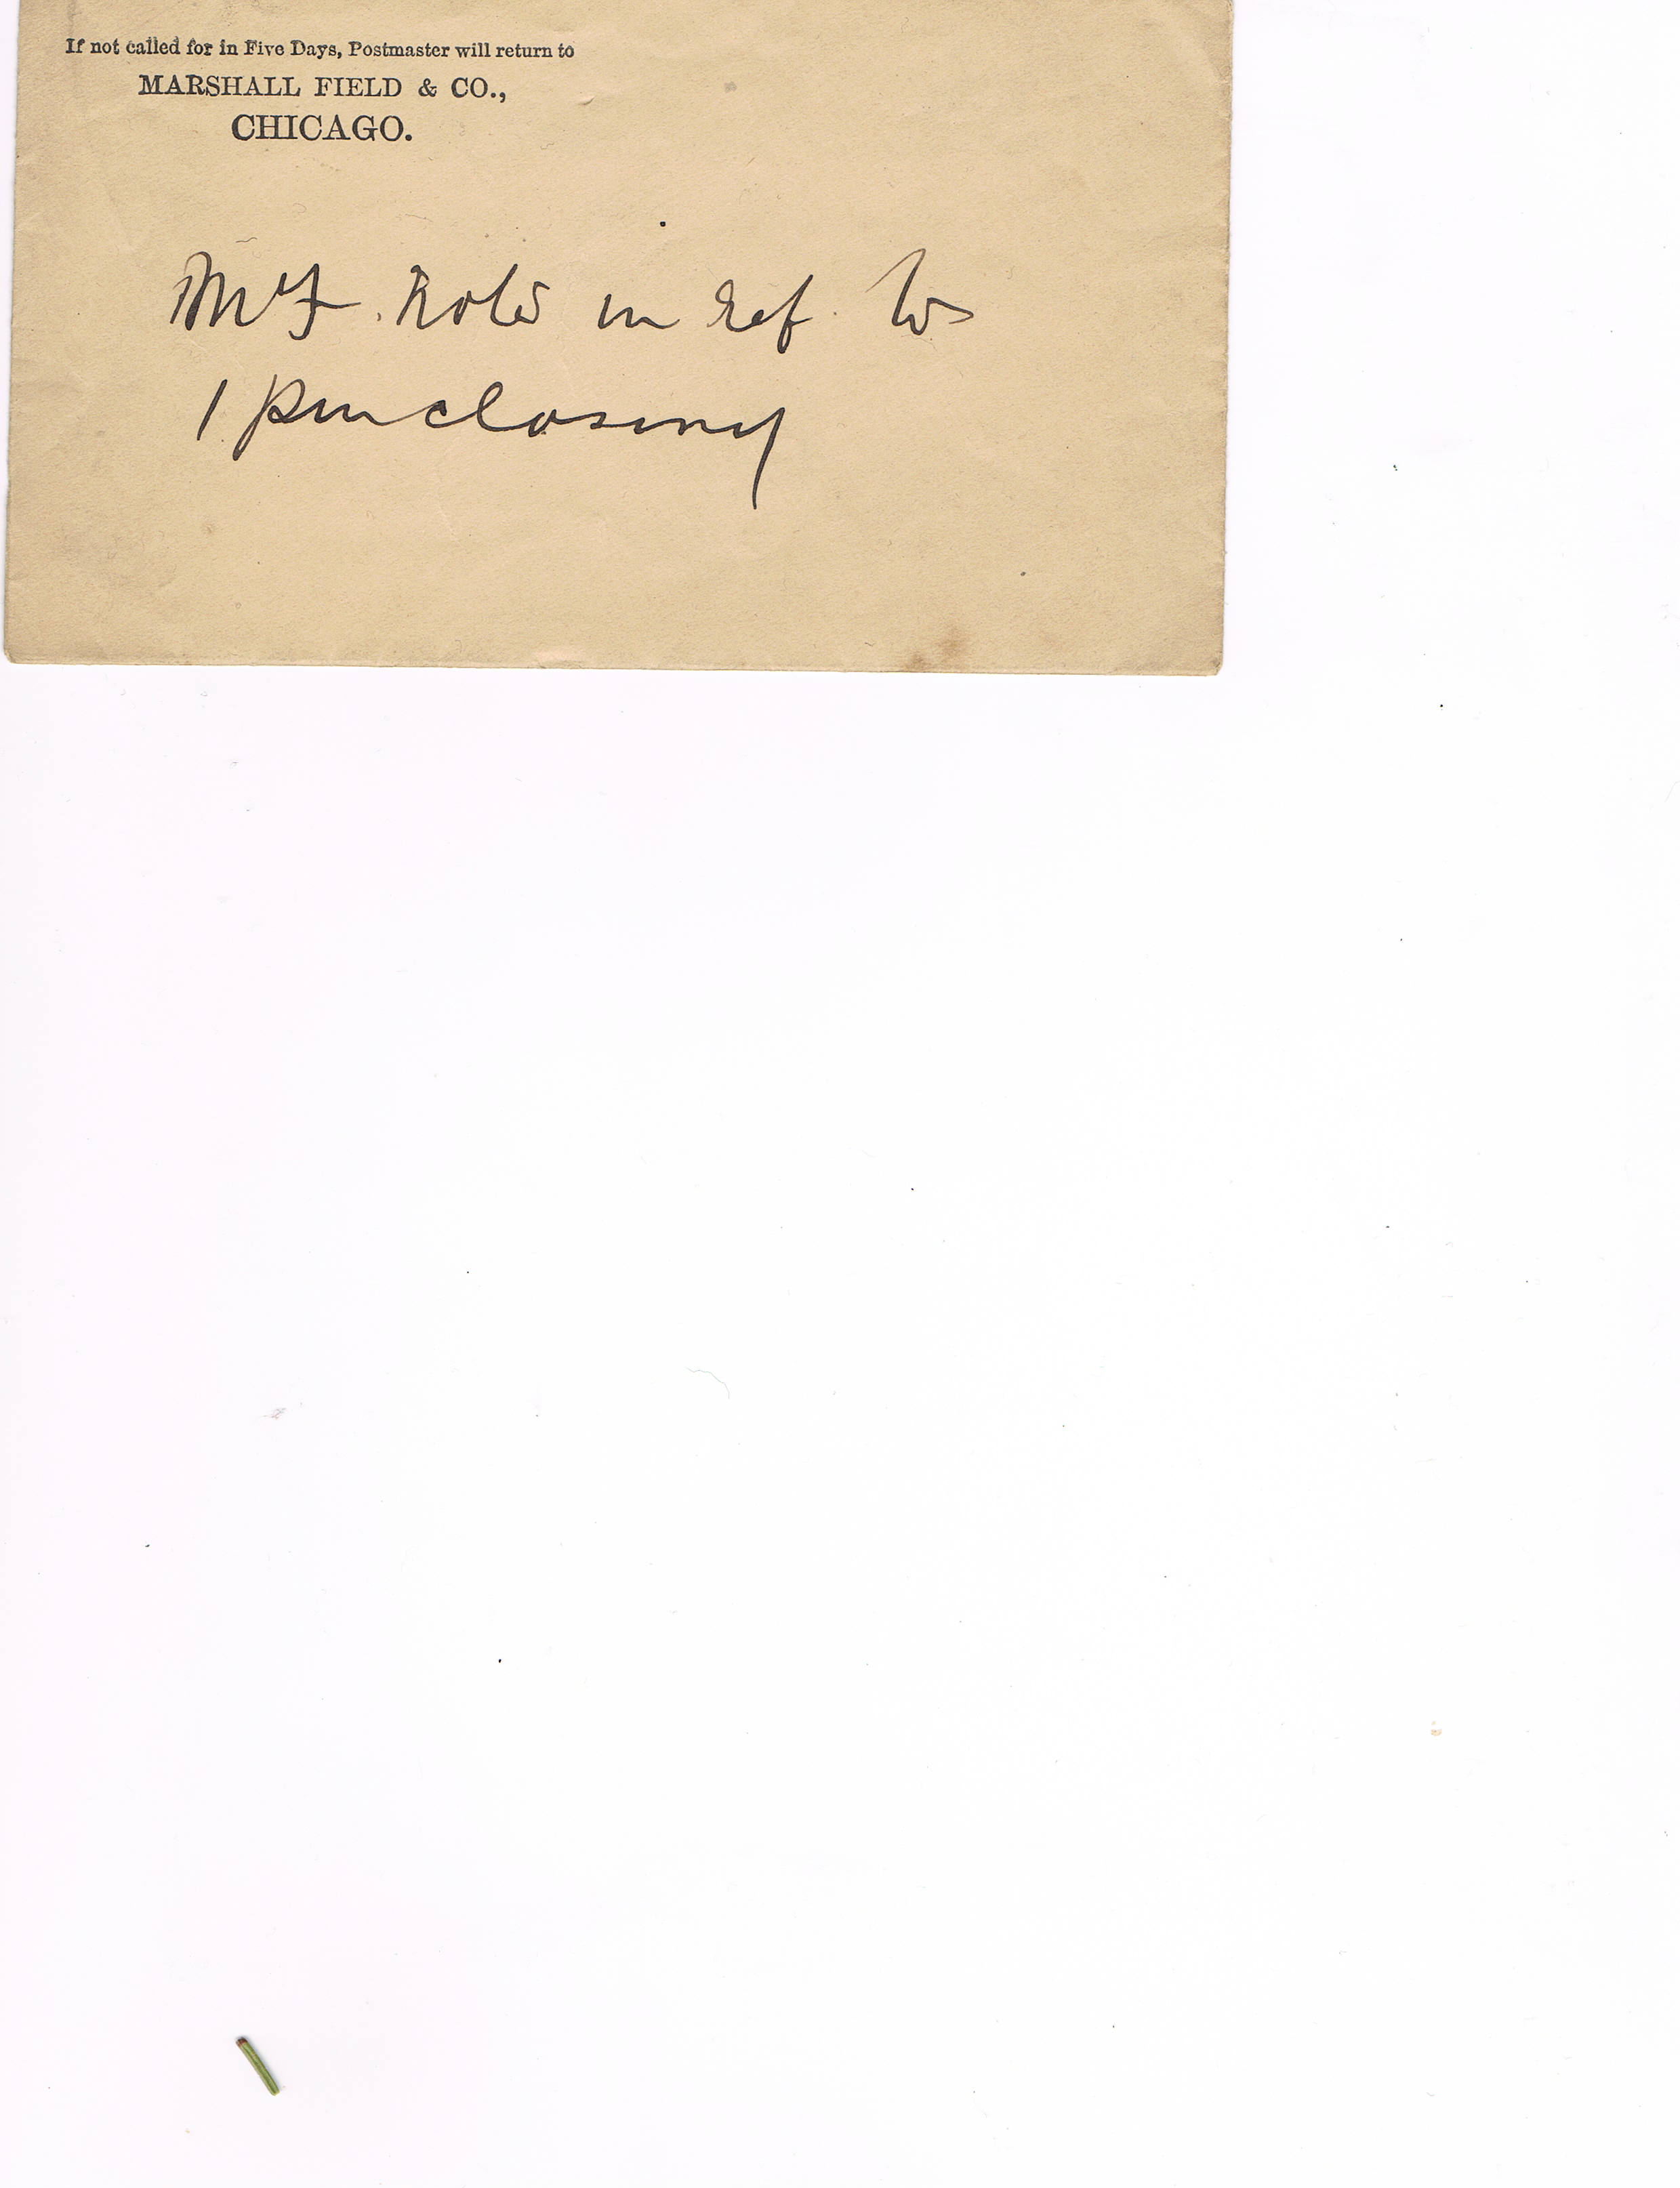 If not called for in Five Days, Postmaster will return to
MARSHALL FIELD & CO.,
CHICAGO.
Note in ref. to
1 P.M. closing